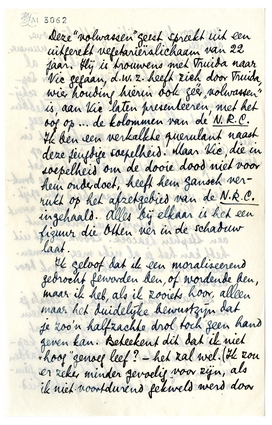 M 3062
Deze "volwassen" geest spreekt uit een
uitgerekt vegetariërslichaam van 22
jaar. Hij is trouwens met Truida naar
Vic gegaan, d.w.z. heeft zich door Truida,
wier houding hierin ook zéér "volwassen"
is, aan Vic laten presenteeren met het
oog op ... de kolommen van de N.R.C.
Ik ben een verkalkte querulant naast
deze jeugdige soepelheid. Maar Vic, die in
soepelheid om de dooie dood niet voor
hem onderdoet, heeft hem ver-
rukt op het afzetgebied van de N.R.C.
ingehaald. Alles bij elkaar is het een
figuur die Otten ver in de schaduw
laat.
Ik geloof dat ik een moraliseerend
gedrocht geworden ben, of wordende ben,
maar ik heb, als ik zooiets hoor, alleen
maar het duidelijke bewustzijn dat
je zoo'n halfzachte drol toch geen hand
geven kan. Beteekent dit dat ik niet
"hoog" genoeg leef? – het zal wel. (Ik zou
er zeker minder gevoelig voor zijn, als
ik niet voortdurend gekweld werd door